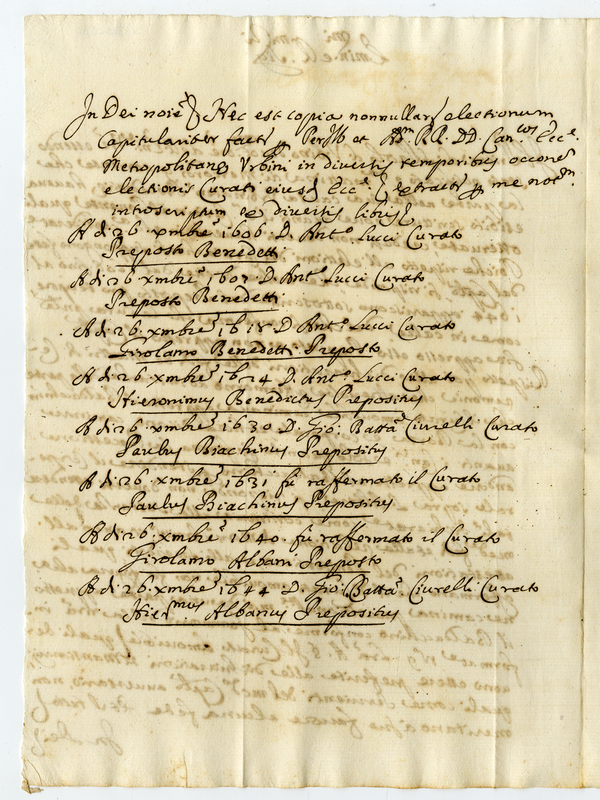 In Dei noie Hec est copia nonnullar electionum
Capitulariter fact p PerIll et Adm RR. DD. Can.cos Ecc.e
Metropolitane Urbini in diversis temporibus occone
electionis Curati eiusd Ecc.e extract p me not.m
introscriptum ex diversis libris
A di 26 xmbre 1606 D. Ant.o Lucci Curato
Preposto Benedetti
A di 26 xmbre 1607 D. Ant.o Lucci Curato
Preposto Benedetti
A di 26 xmbre 1618 D Ant.o Lucci Curato
Girolamo Benedetti Preposto
A di 26 xmbre 1624 D. Ant.o Lucci Curato
Hieronimus Benedictus Prepositus
A di 26 xmbre 1630 D. Gio: Batta Ciurelli Curato
Paulus Biachinus Prepositus
A di 26 xmbre 1631 fù raffermato il Curato
Paulus Biachinus Prepositus
A di 26 xmbre 1640. fù raffermato il Curato
Girolamo Albani Preposto
A di 26 xmbre 1644 D. Gio: Batta Ciurelli Curato
Hier.mus Albanus Prepositus